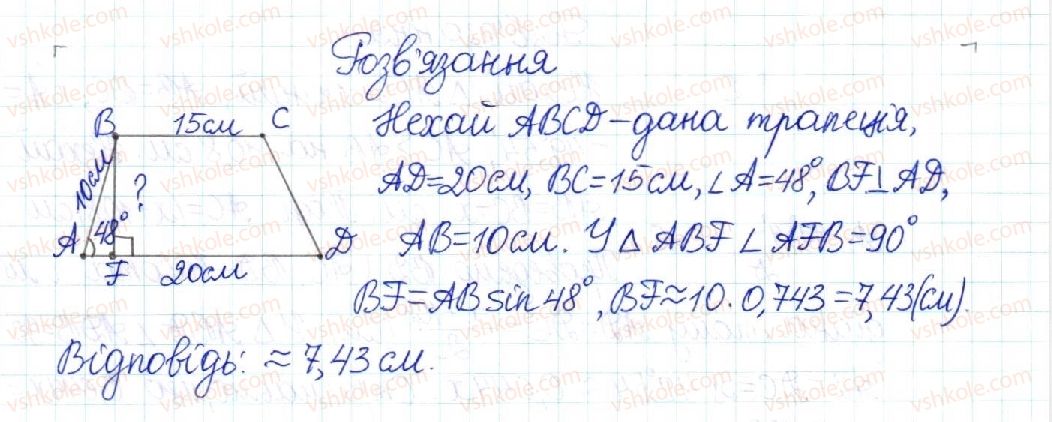 Розв'язання
B 15см C
10см
?
A 48°
F 20см D
Нехай ABCD – дана трапеція,
AD=20см, BC=15см, ∠A=48°, BF⊥AD,
AB=10см. У △ ABF ∠ AFB=90°
BF=AB sin 48°, BF≈10·0,743=7,43(см).
Відповідь: ≈ 7,43 см.
vshkole.com